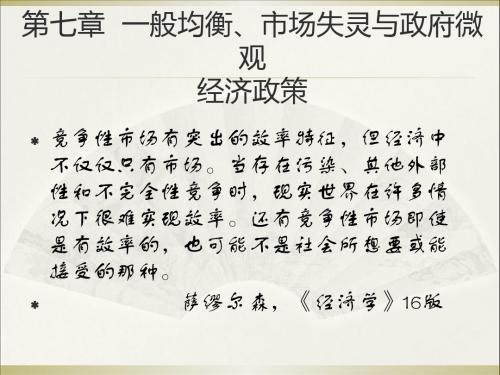 第七章 一般均衡、市场失灵与政府微
观
经济政策
竞争性市场有突出的效率特征，但经济中
不仅仅只有市场。当存在污染、其他外部
性和不完全性竞争时，现实世界在许多情
况下很难实现效率。还有竞争性市场即使
是有效率的，也可能不是社会所想要或能
接受的那种。
萨缪尔森，《经济学》16版